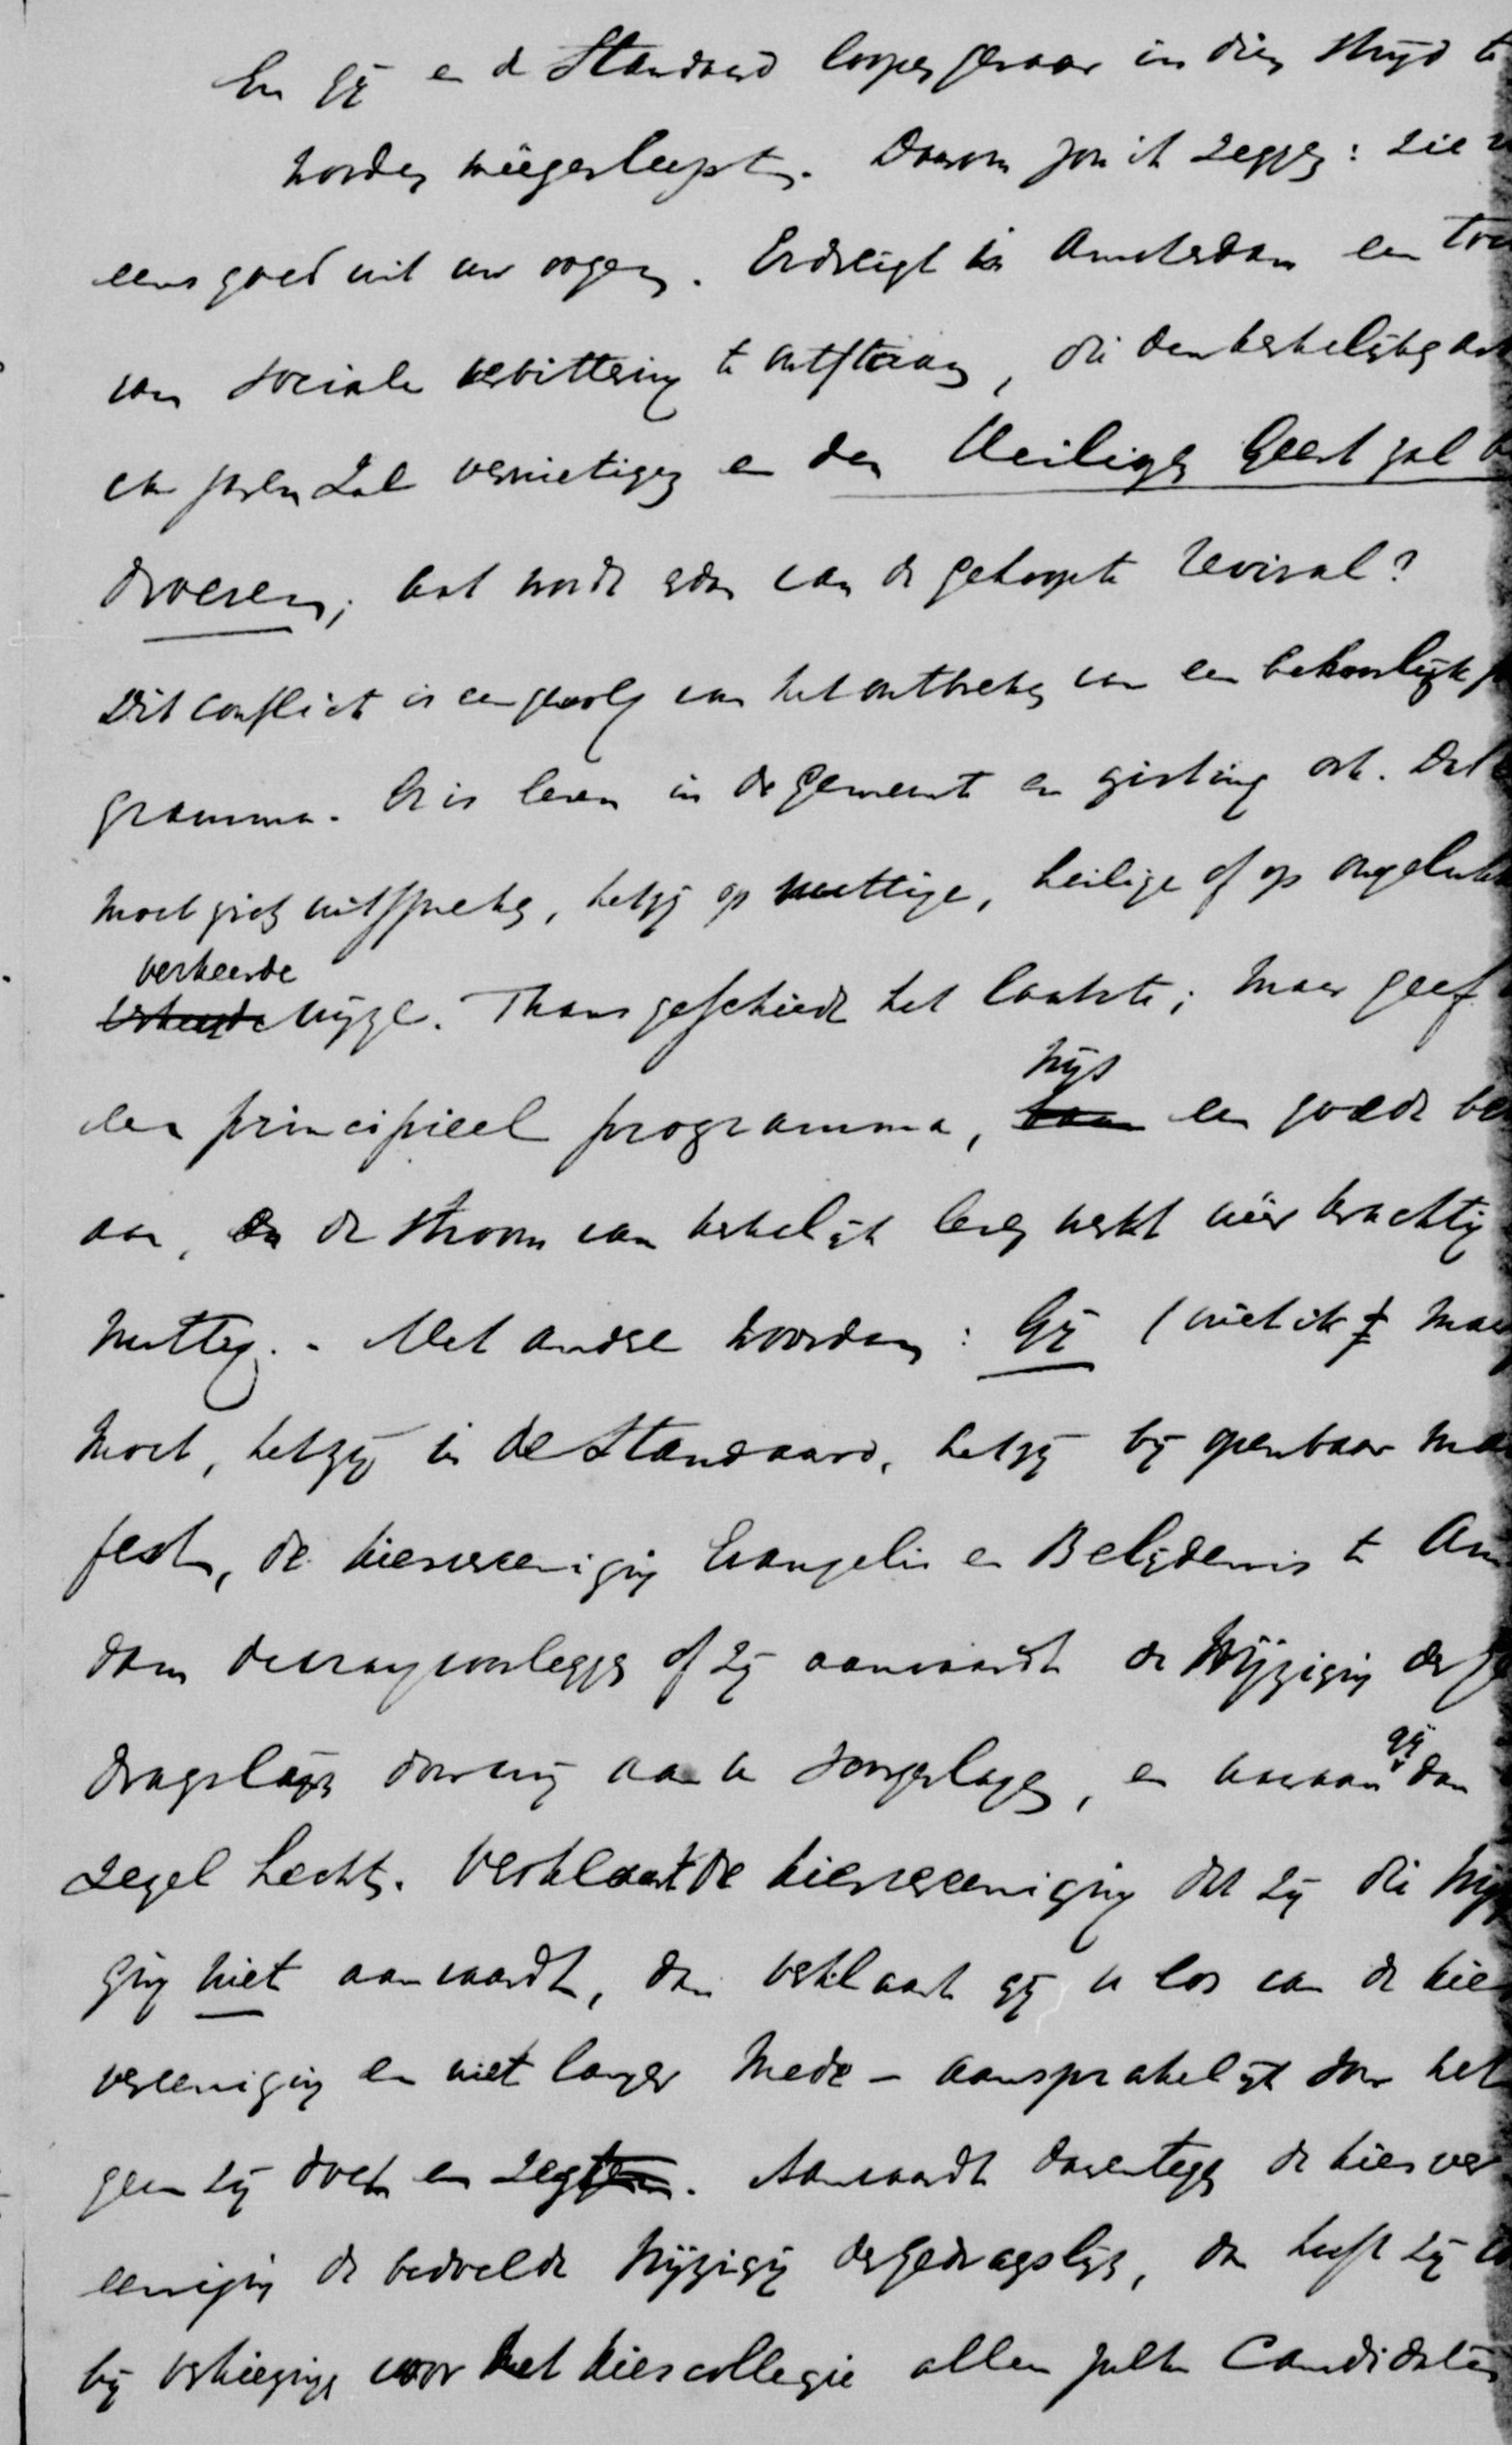 En gij en de Standaard loopen gevaar in dien strijd te
worden meegesleept. Daarom zou ik zeggen: zie
eens goed uit uw oogen. Er dreigt in Amsterdam een
van sociale verbittering te ontstaan, die den kerkelijken
en zal vernietigen en den Heiligen Geest zal be
droeven; wat wordt er dan van de gehoopte revival?
Dit conflict is een gevolg van het ontbreken van een behoorlijk
gramma. Er is leven in de gemeente en gisting ook. Dat
moet zich uitspreken, hetzij op nuttige, heilige of op ongelukk
verkeerde
wijze. Thans geschiedt het laatste; maar geef
wijs
een principieel programma, een goede be
aan, en de stroom van kerkelijk leven werkt weer krachtig
nuttig. - Met andere woorden: Gij (niet ik) maar
moet, hetzij in de Standaard, hetzij bij openbaar ma
fest, de kiesvereeniging Evangelie en Belijdenis te Am
dam de vraag voorleggen of zij aanvaardt de wijziging der ge
dragslijn door mij aan u voorgeslagen, en waaraan gij dan
zegel hecht. Verklaart de kiesvereeniging dat zij die wij
ging niet aanvaardt, dan verklaart gij u los van de kies
vereeniging en niet langer mede-aansprakelijk voor het
geen zij doet en zegt. Aanvaardt daarentegen de kiesver
eeniging de bedoelde wijziging der gedragslijn, dan heeft zij
bij verkiezing voor het kiescollegie alleen zulke Candidaten